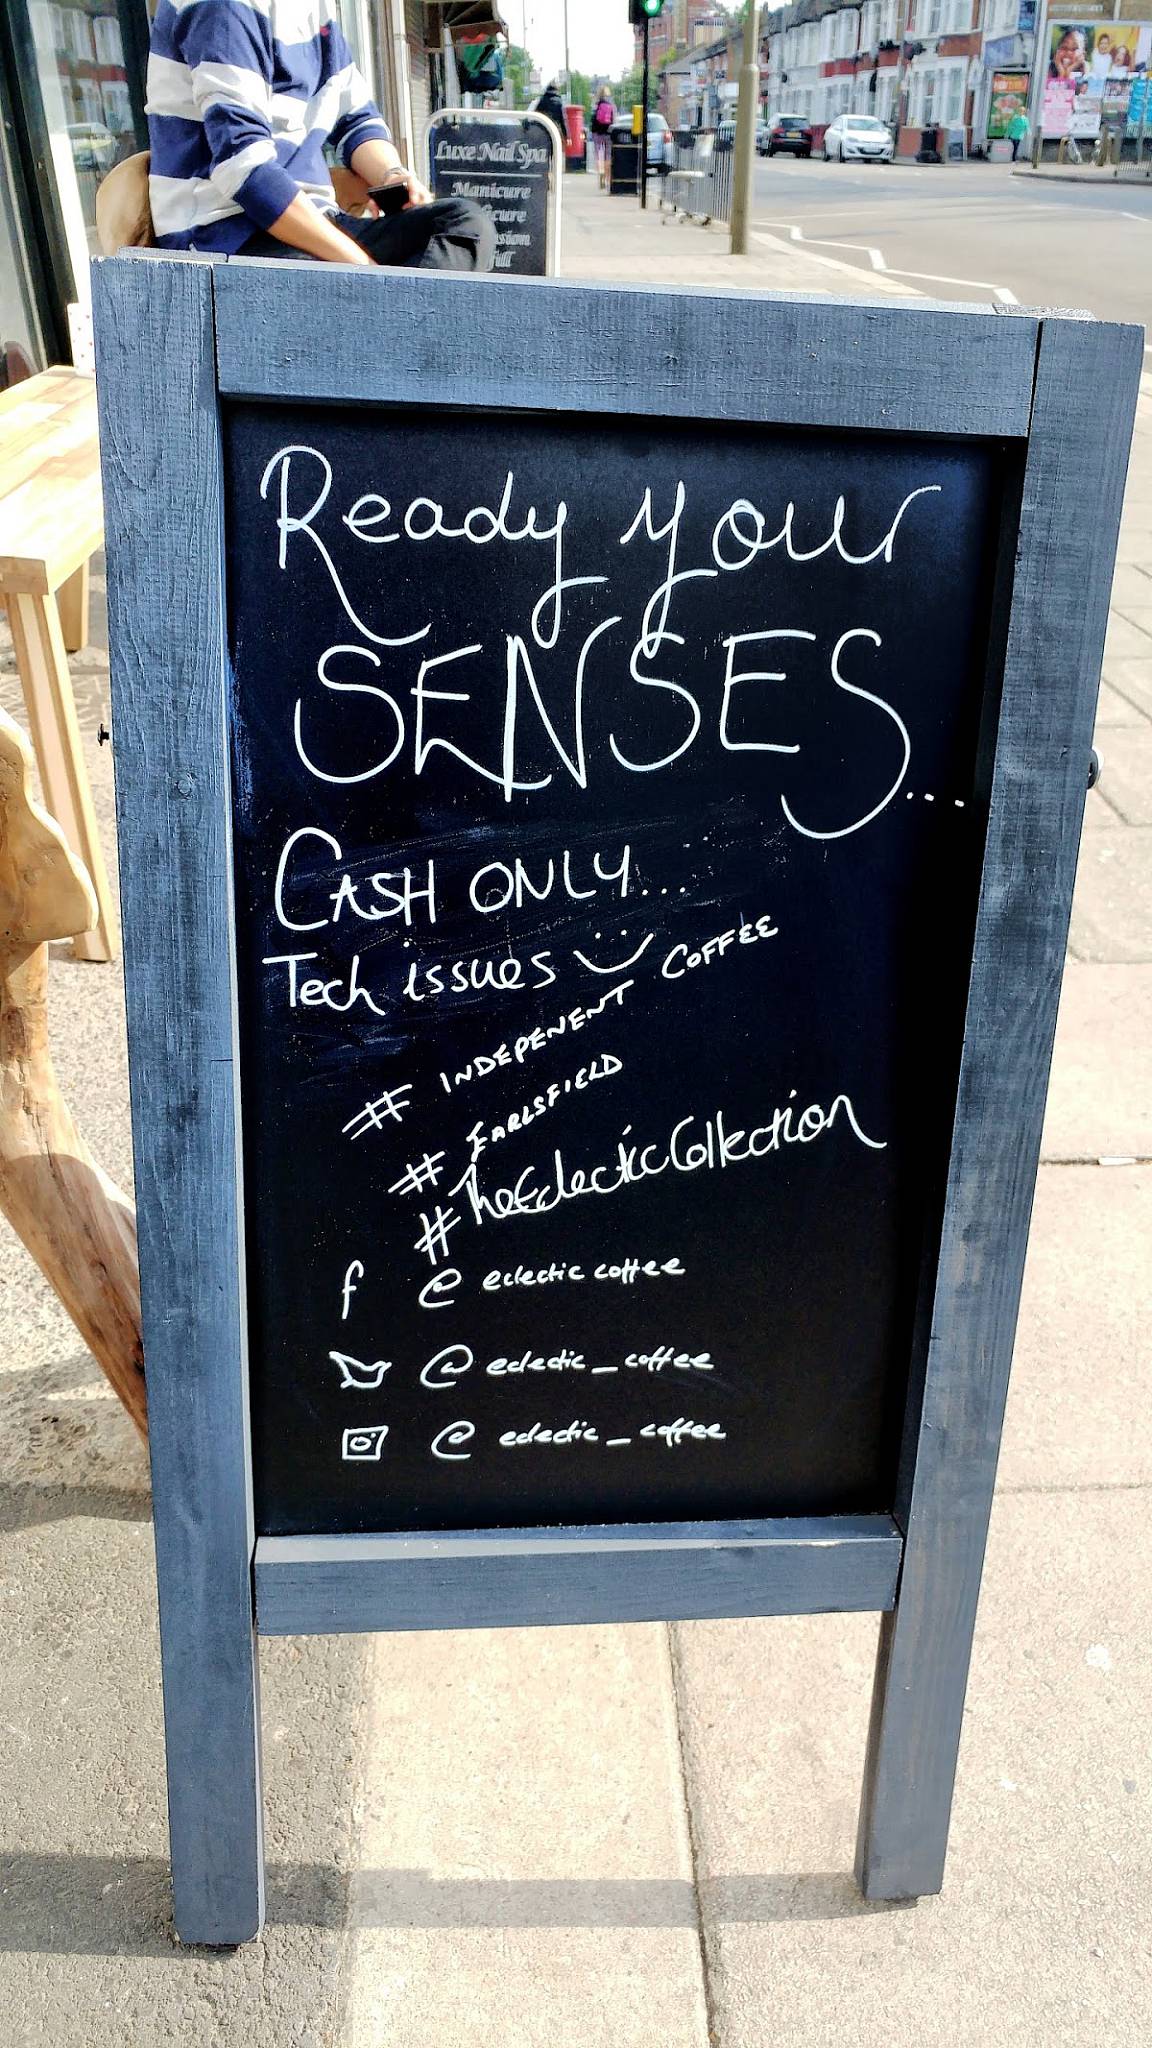 Luxe Nail Spa
Manicure
Ready your
SENSES....
CASH ONLY...
Tech issues
# INDEPENENT COFFEE
# EARLSFIELD
#TheEclecticCollection
f @ eclectic coffee
@ eclectic_coffee
@ eclectic_coffee